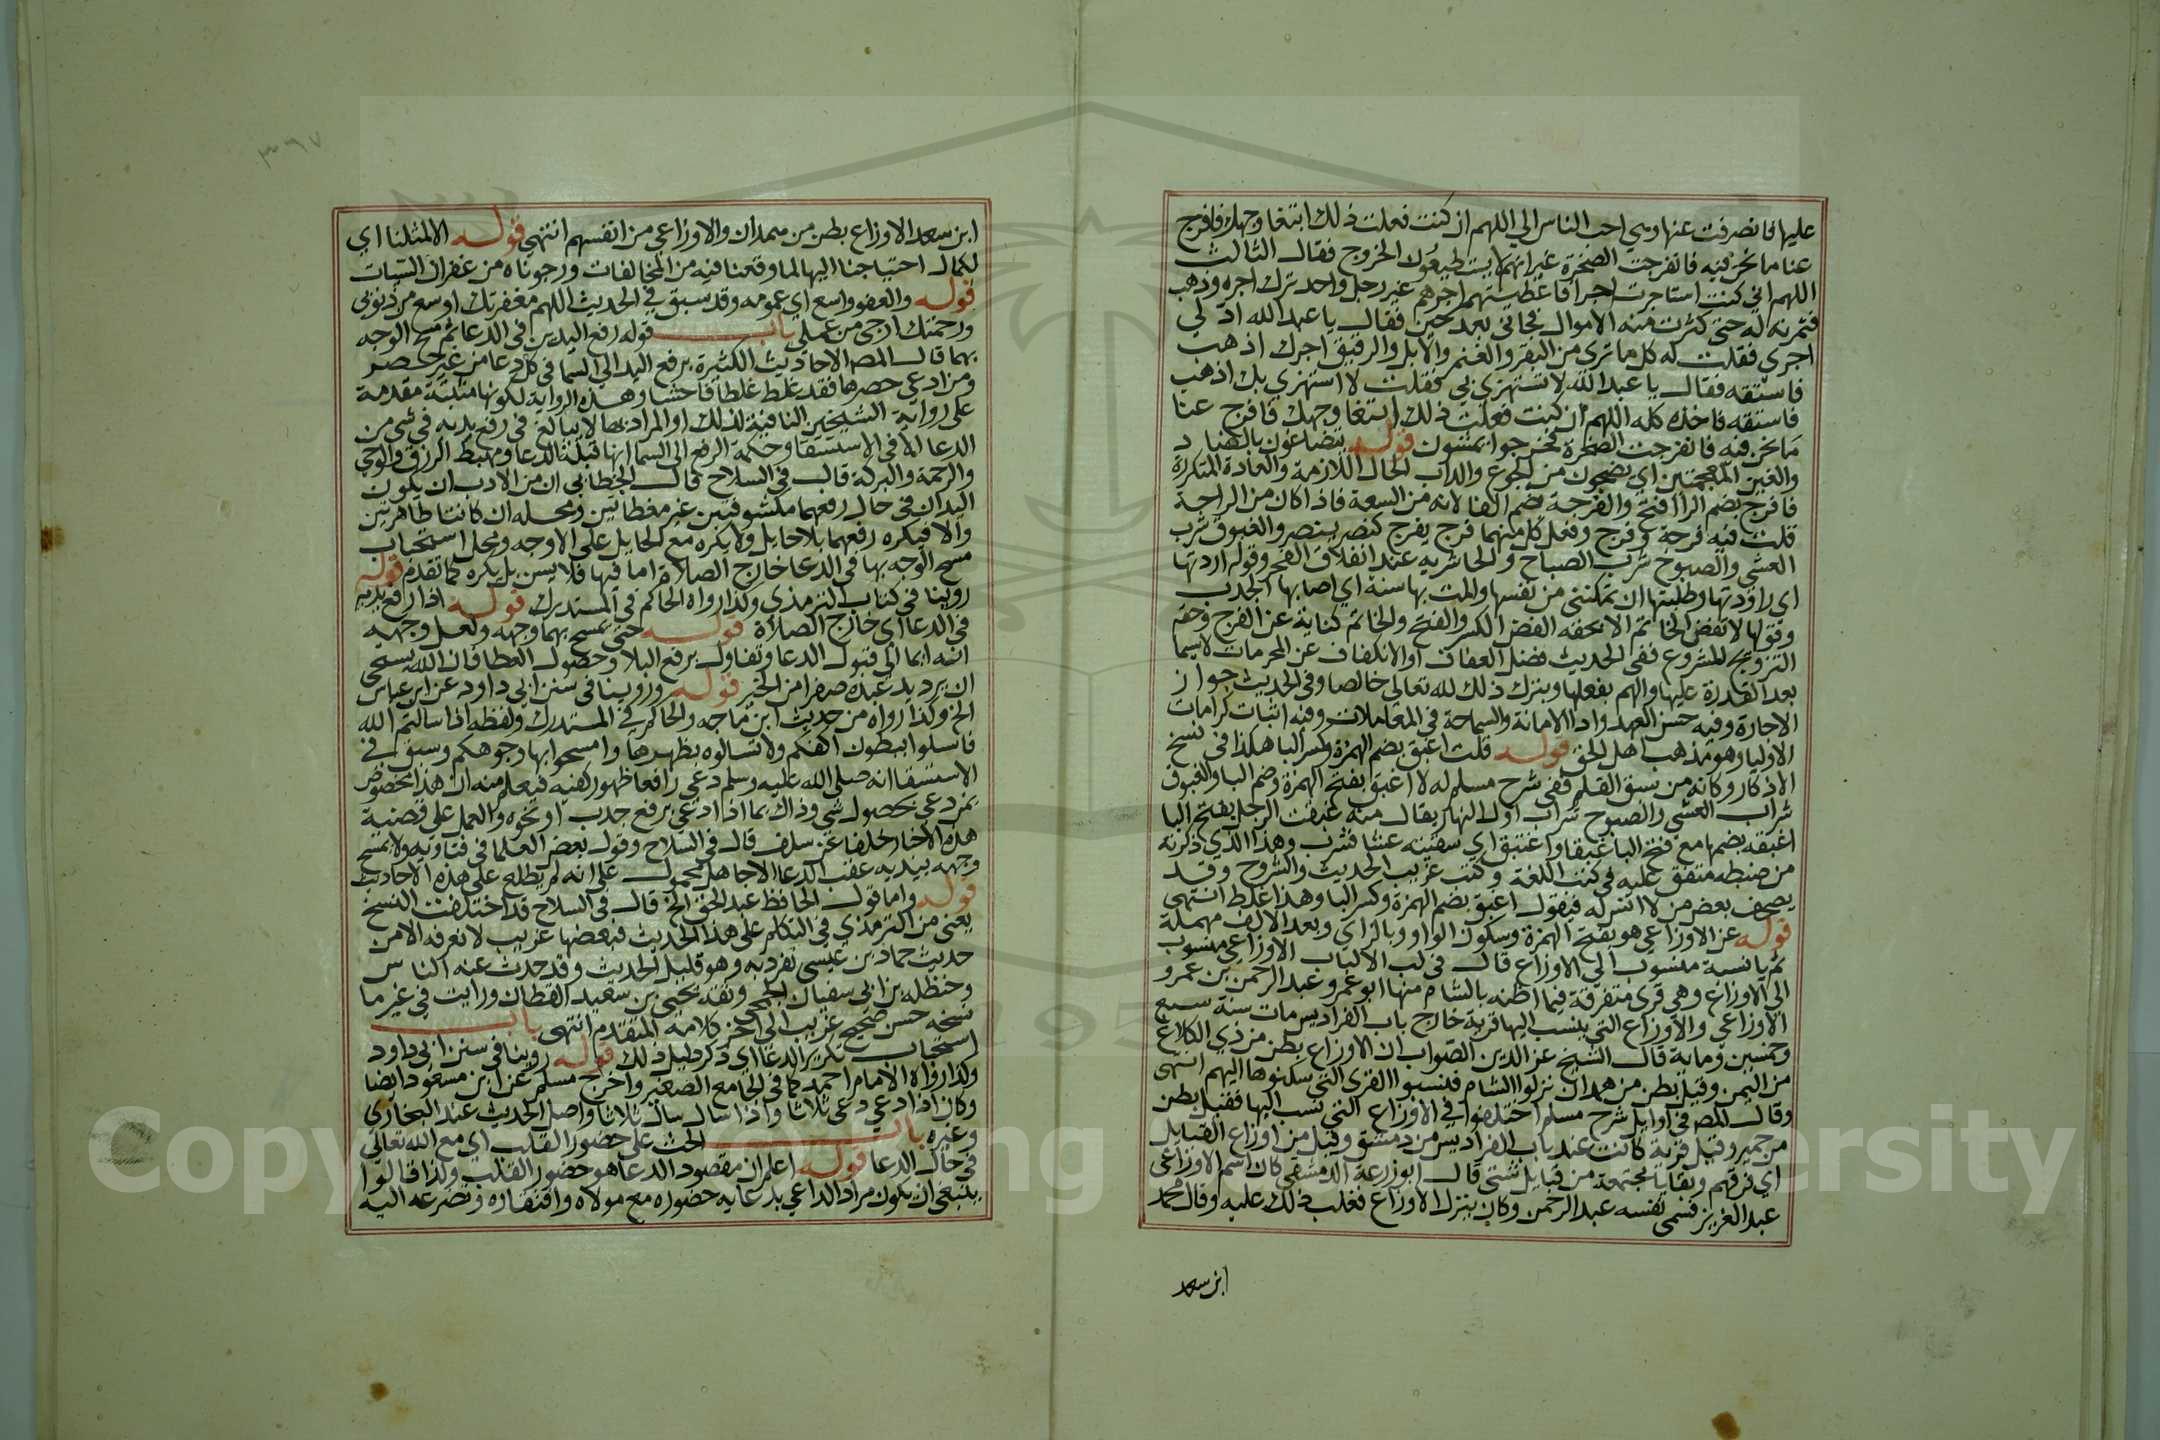 عليها فانصرفت عنها وهي احب الناس الي اللهم ان كنت فعلت ذلك ابتغا وجهك فافرج
عنا ما نحن فيه فانفرجت الصخرة غير انهم لا يستطيعون الخروج فقال الثالث
اللهم اني كنت استاجرت اجرا فاعطيتهم اجرهم غير رجل واحد ترك اجره وذهب
فثمرته له حتى كثرت منه الاموال فجاني بعد حين فقال يا عبد الله اد لي
اجري فقلت له كل ما ترى من البقر والغنم والابل والرقيق اجرك اذهب
فاستقه فقال يا عبد الله لا تستهزي بي فقلت لا استهزي بك اذهب
فاستقه فاخذه كله اللهم ان كنت فعلت ذلك ابتغا وجهك فافرج عنا
ما نحن فيه فانفرجت الصخرة فخرجوا يمشون قوله يتضاغون بالضاد
والغين المعجمتين اي يضجون من الجوع والداب الحال اللازمة والعادة المتكررة
فافرج بضم الرا افتح والفرجة بضم الفا لانه من السعة فاذا كان من الراحة
قلت فيه فرجة وفرج وفعل كل منهما فرج يفرج كنصر ينصر والغبوق شرب
العشي والصبوح شرب الصباح والجاشرية عند انفلاق الفجر وقوله اردتها
اي راودتها وطلبتها ان تمكنني من نفسها والمت بها سنة اي اصابها الجدب
وقولها لا تفض الخاتم الا بحقه الفض الكسر والفتح والخاتم كناية عن الفرج وحقه
التزويج المشروع ففي الحديث فضل العفاف والانكفاف عن المحرمات لا سيما
بعد القدرة عليها والهم بفعلها ويترك ذلك لله تعالى خالصا وفي الحديث جواز
الاجارة وفيه حسن العهد وادا الامانة والسماحة في المعاملات وفيه اثبات كرامات
الاوليا وهو مذهب اهل الحق قوله قلت اغبق بضم الهمزة وكسر البا هكذا في نسخ
الاذكار وكانه من سبق القلم ففي شرح مسلم له لا اغبق بفتح الهمزة وضم البا والغبوق
شراب العشي والصبوح شراب اول النهار يقال منه غبقت الرجل بفتح البا
اغبقه بضمها مع فتح البا غبقا واغتبق اي سقيته عشا فشرب وهذا الذي ذكرته
من ضبطه متفق عليه في كتب اللغة وكتب غريب الحديث والشروح وقد
يصحف بعض من لا انس له فيقول اغبق بضم الهمزة وكسر البا وهذا غلط انتهى
قوله عن الاوزاعي هو بفتح الهمزة وسكون الواو وبالزاي وبعد الالف مهملة
ثم يا نسبة منسوب الي الاوزاع قال في لب الالباب الاوزاعي منسوب
الي الاوزاع وهي قرى متفرقة فيما اظنه بالشام منها ابو عمرو عبد الرحمن بن عمرو
الاوزاعي والاوزاع التي ينسب اليها قرية خارج باب الفراديس مات سنة سبع
وخمسين وماية قال الشيخ عز الدين الصواب ان الاوزاع بطن من ذي الكلاع
من اليمن وقيل بطن من همدان نزلوا الشام فنسبوا القرى التي سكنوها اليهم انتهى
وقال المص في اوايل شرح مسلم اختلفوا في الاوزاع التي نسب اليها فقيل بطن
من حمير وقيل قرية كانت عند باب الفراديس من دمشق وقيل من اوزاع القبايل
اي فرقهم وبقايا مجتمعة من قبايل شتى قال ابو زرعة الدمشقي كان اسم الاوزاعي
عبد العزيز فسمى نفسه عبد الرحمن وكان ينزل الاوزاع فغلب ذلك عليه وقال محمد
ابن سعد
ابن سعد الاوزاع بطن من همدان والاوزاعي من انفسهم انتهي قوله الا لمثلنا اي
لكمال احتياجنا اليها لما وقعنا فيه من المخالفات ورجوناه من غفران السيات
قوله والعفو واسع اي عمومه وقد سبق في الحديث اللهم مغفرتك اوسع من ذنوبي
ورحمتك ارجى من عملي باب قوله رفع اليدين في الدعا ثم مسح الوجه
بهما قال المص الاحاديث الكثيرة برفع اليد الى السما في كل دعا من غير حصر
ومن ادعي حصرها فقد غلط غلطا فاحشا وهذه الرواية لكونها مثبتة مقدمة
على رواية الشيخين النافية لذلك او المراد بها لا يبالغ في رفع يديه في شي من
الدعا الا في الاستسقا وحكمة الرفع الى السما انها قبلة الدعا ومهبط الرزق والوحي
والرحمة والبركة قال في السلاح قال الخطابي ان من الادب ان يكون
اليدان في حال رفعهما مكشوفتين غير مغطاتين ومحله ان كانتا طاهرتين
والا فيكره رفعهما بلا حايل ولا يكره مع الحايل على الاوجه ومحل استحباب
مسح الوجه بها في الدعا خارج الصلاة اما فيها فلا يسن بل يكره كما تقدم قوله
روينا في كتاب الترمذي وكذا رواه الحاكم في المستدرك قوله اذا رفع يديه
في الدعا اي خارج الصلاة قوله حتى يمسح بهما وجهه ولعل وجهه
انه ايما الى قبول الدعا وتفاول برفع البلا وحصول العطا فان الله يستحي
ان يرد يد عبده صفرا من الخير قوله وروينا في سنن ابي داود عن ابن عباس
الخ وكذا رواه من حديث ابن ماجه والحاكم في المستدرك ولفظه اذا سالتم الله
فاسلوا ببطون اكفكم ولا تسالوه بظهرها وامسحوا بها وجوهكم وسبق في
الاستسقا انه صلى الله عليه وسلم دعي رافعا ظهور كفيه فيعلم منه ان هذا مخصوص
بمن دعي بحصول شي وذاك بما اذا ادعي برفع جدب او نحوه والعمل على قضية
هذه الاخبار خلفا عن سلف قال في السلاح وقول بعض العلما في فتاويه ولا يمسح
وجهه بيديه عقب الدعا الا جاهل محمول على انه لم يطلع على هذه الاحاديث
قوله واما قول الحافظ عبد الحق الخ قال في السلاح قد اختلفت النسخ
يعني من الترمذي في التكلم على هذا الحديث فبعضها غريب لا نعرفه الا من
حديث حماد بن عيسى تفرد به وهو قليل الحديث وقد حدث عنه الناس
وحنظله بن ابي سفيان الجمحي وثقه يحيى بن سعيد القطان ورايت في غير ما
نسخه حسن صحيح غريب الى اخر كلامه المتقدم انتهى باب
استحباب تكرير الدعا اي ذكر دليل ذلك قوله روينا في سنن ابي داود
وكذا رواه الامام احمد كما في الجامع الصغير واخرج مسلم عن ابن مسعود ايضا
وكان اذا دعي دعي ثلاثا واذا سال سال ثلاثا واصل الحديث عند البخاري
وغيره باب الحث على حضور القلب اي مع الله تعالى
في حال الدعا قوله اعلم ان مقصود الدعا هو حضور القلب ولذا قالوا
ينبغي ان يكون مراد الداعي بدعايه حضوره مع مولاه وافتقاره وتضرعه اليه